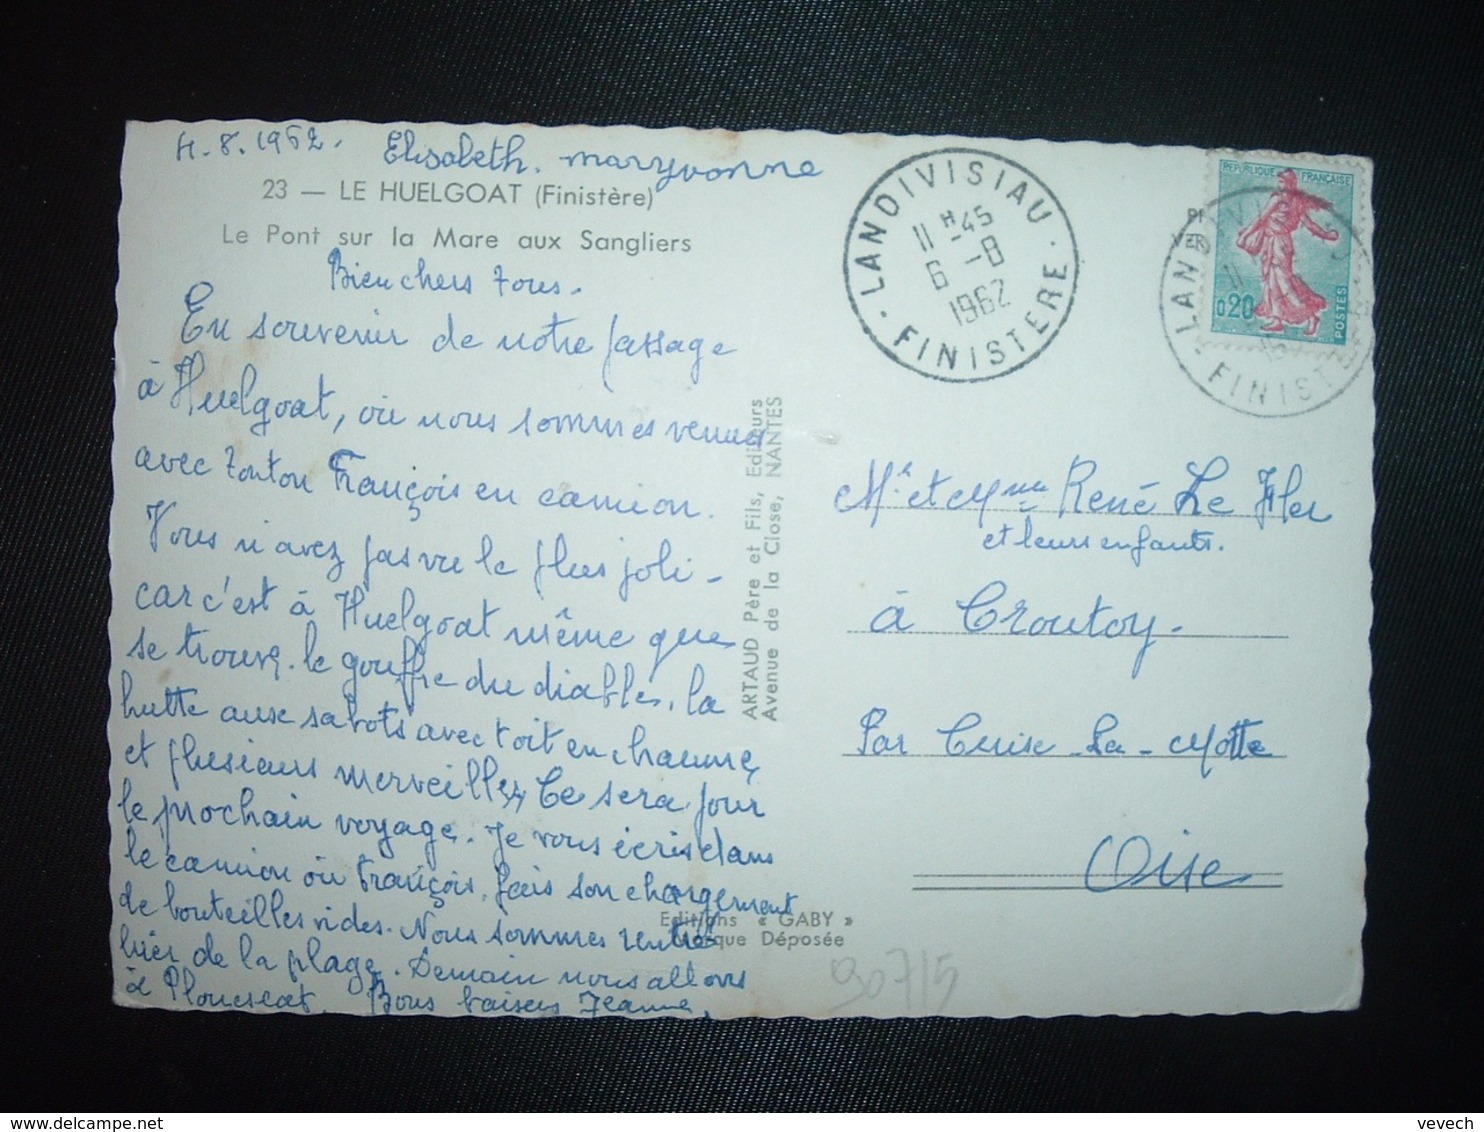 4.8.1962. Elisabeth. maryvonne
23 — LE HUELGOAT (Finistère)
Le Pont sur la Mare aux Sangliers
Bien chers tous.
En souvenir de notre passage
à Huelgoat, où nous sommes venus
avec tonton François en camion.
Vous n'avez pas vu le plus joli.
car c'est à Huelgoat même que
se trouve. le gouffre du diables, la
hutte aux sabots avec toit en chaume,
et plusieurs merveilles, Ce sera pour
le prochain voyage. Je vous écris dans
le camion où François, fais son chargement
de bouteilles vides. Nous sommes rentrés
hier de la plage. Demain nous allons
à Plouescat. Bons baisers Jeanne,
ARTAUD Père et Fils, Editeurs
Avenue de la Close, NANTES
Editions « GABY »
Marque Déposée
LANDIVISIAU
11 H 45
6 - 8
1962
FINISTERE
REPUBLIQUE FRANÇAISE
0,20
POSTES
LANDIVISIAU
11
FINISTERE
Mr et Mme René Le Fler
et leurs enfants.
à Croutoy.
Par Cuise-La-Motte
Oise
907/5
vevech